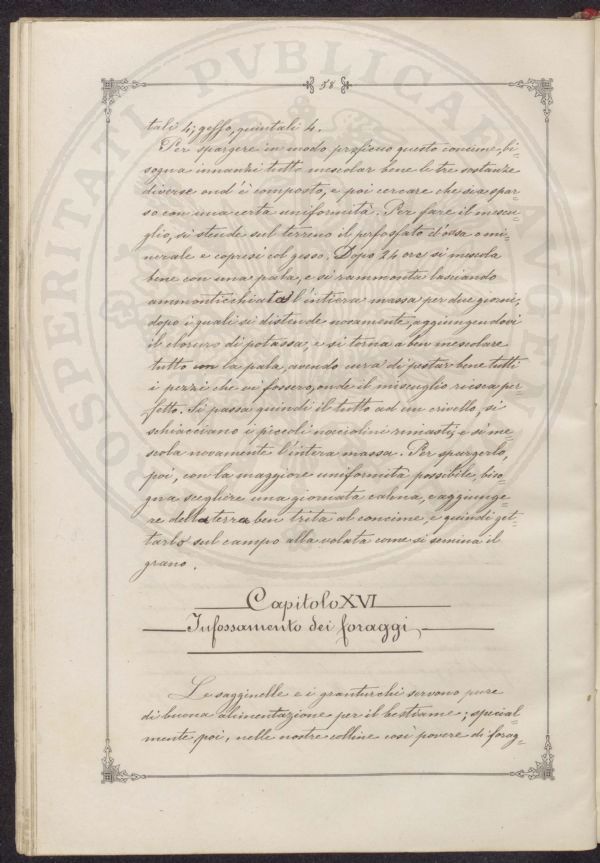 58.
tali 4; gesso, quintali 4.
Per spargere in modo prefisso questo concime, bi-
sogna innanzi tutto mescolar bene le tre sostanze
diverse ond'è composto, e poi cercare che sia spar-
so con una certa uniformità. Per fare il mescu-
glio, si stende sul terreno il perfosfato d'ossa o mi-
nerale e copresi col gesso. Dopo 24 ore si mescola
bene con una pala, e si rammonta lasciando
ammonticchiata l'intiera massa per due giorni;
dopo i quali si distende novamente, aggiungendovi
il cloruro di potassa, e si torna a ben mescolare
tutto con la pala, avendo cura di pestar bene tutti
i pezzi che vi fossero, onde il miscuglio riesca per-
fetto. Si passa quindi il tutto ad un crivello, si
schiacciano i piccoli nocciolini rimasti, e si me-
scola novamente l'intera massa. Per spargerlo,
poi, con la maggiore uniformità possibile, biso-
gna scegliere una giornata calma, e aggiunge-
re della terra ben trita al concime, e quindi get-
tarlo sul campo alla volata come si semina il
grano.
Capitolo XVI
Infossamento dei foraggi
Le sagginelle e i granturchi servono pure
di buona alimentazione per il bestiame; special-
mente, poi, nelle nostre colline così povere di forag-
PROSPERITATI PVBLICAE AVGEN